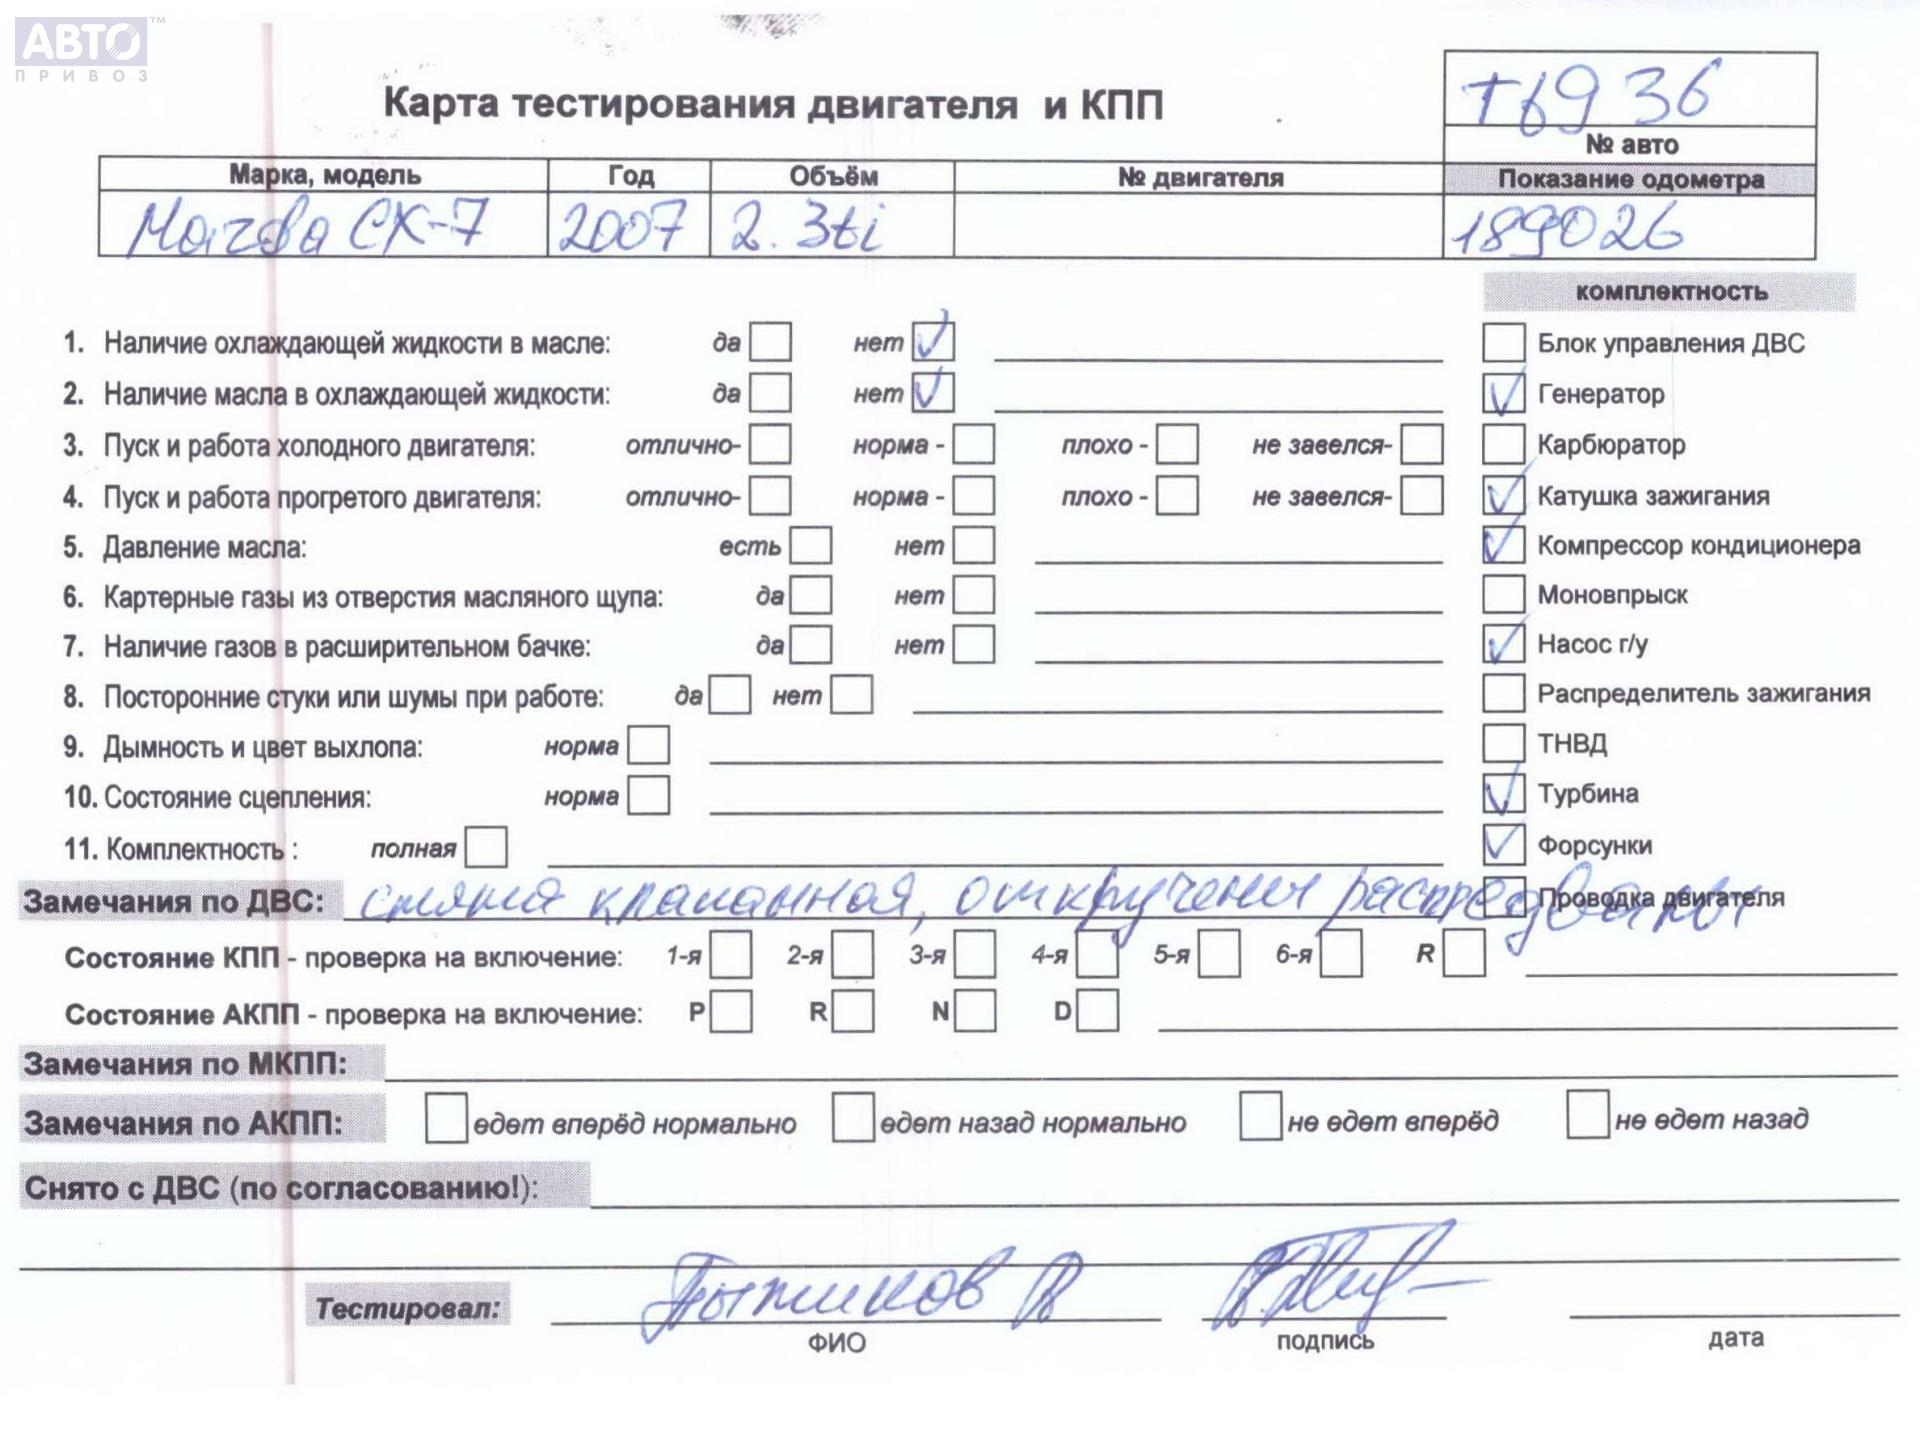 АВТО™
ПРИВОЗ
Карта тестирования двигателя и КПП
Т6936
№ авто
Марка, модель Год Объём № двигателя Показание одометра
Мазда СХ-7 2007 2.3ti 189026
комплектность
1. Наличие охлаждающей жидкости в масле: да нет Блок управления ДВС
2. Наличие масла в охлаждающей жидкости: да нет Генератор
3. Пуск и работа холодного двигателя: отлично- норма - плохо - не завелся- Карбюратор
4. Пуск и работа прогретого двигателя: отлично- норма - плохо - не завелся- Катушка зажигания
5. Давление масла: есть нет Компрессор кондиционера
6. Картерные газы из отверстия масляного щупа: да нет Моновпрыск
7. Наличие газов в расширительном бачке: да нет Насос г/у
8. Посторонние стуки или шумы при работе: да нет Распределитель зажигания
9. Дымность и цвет выхлопа: норма ТНВД
10. Состояние сцепления: норма Турбина
11. Комплектность : полная Форсунки
Замечания по ДВС: снята клапанная, откручены распредвалы Проводка двигателя
Состояние КПП - проверка на включение: 1-я 2-я 3-я 4-я 5-я 6-я R
Состояние АКПП - проверка на включение: P R N D
Замечания по МКПП:
Замечания по АКПП: едет вперёд нормально едет назад нормально не едет вперёд не едет назад
Снято с ДВС (по согласованию!):
Тестировал:
ФИО подпись дата